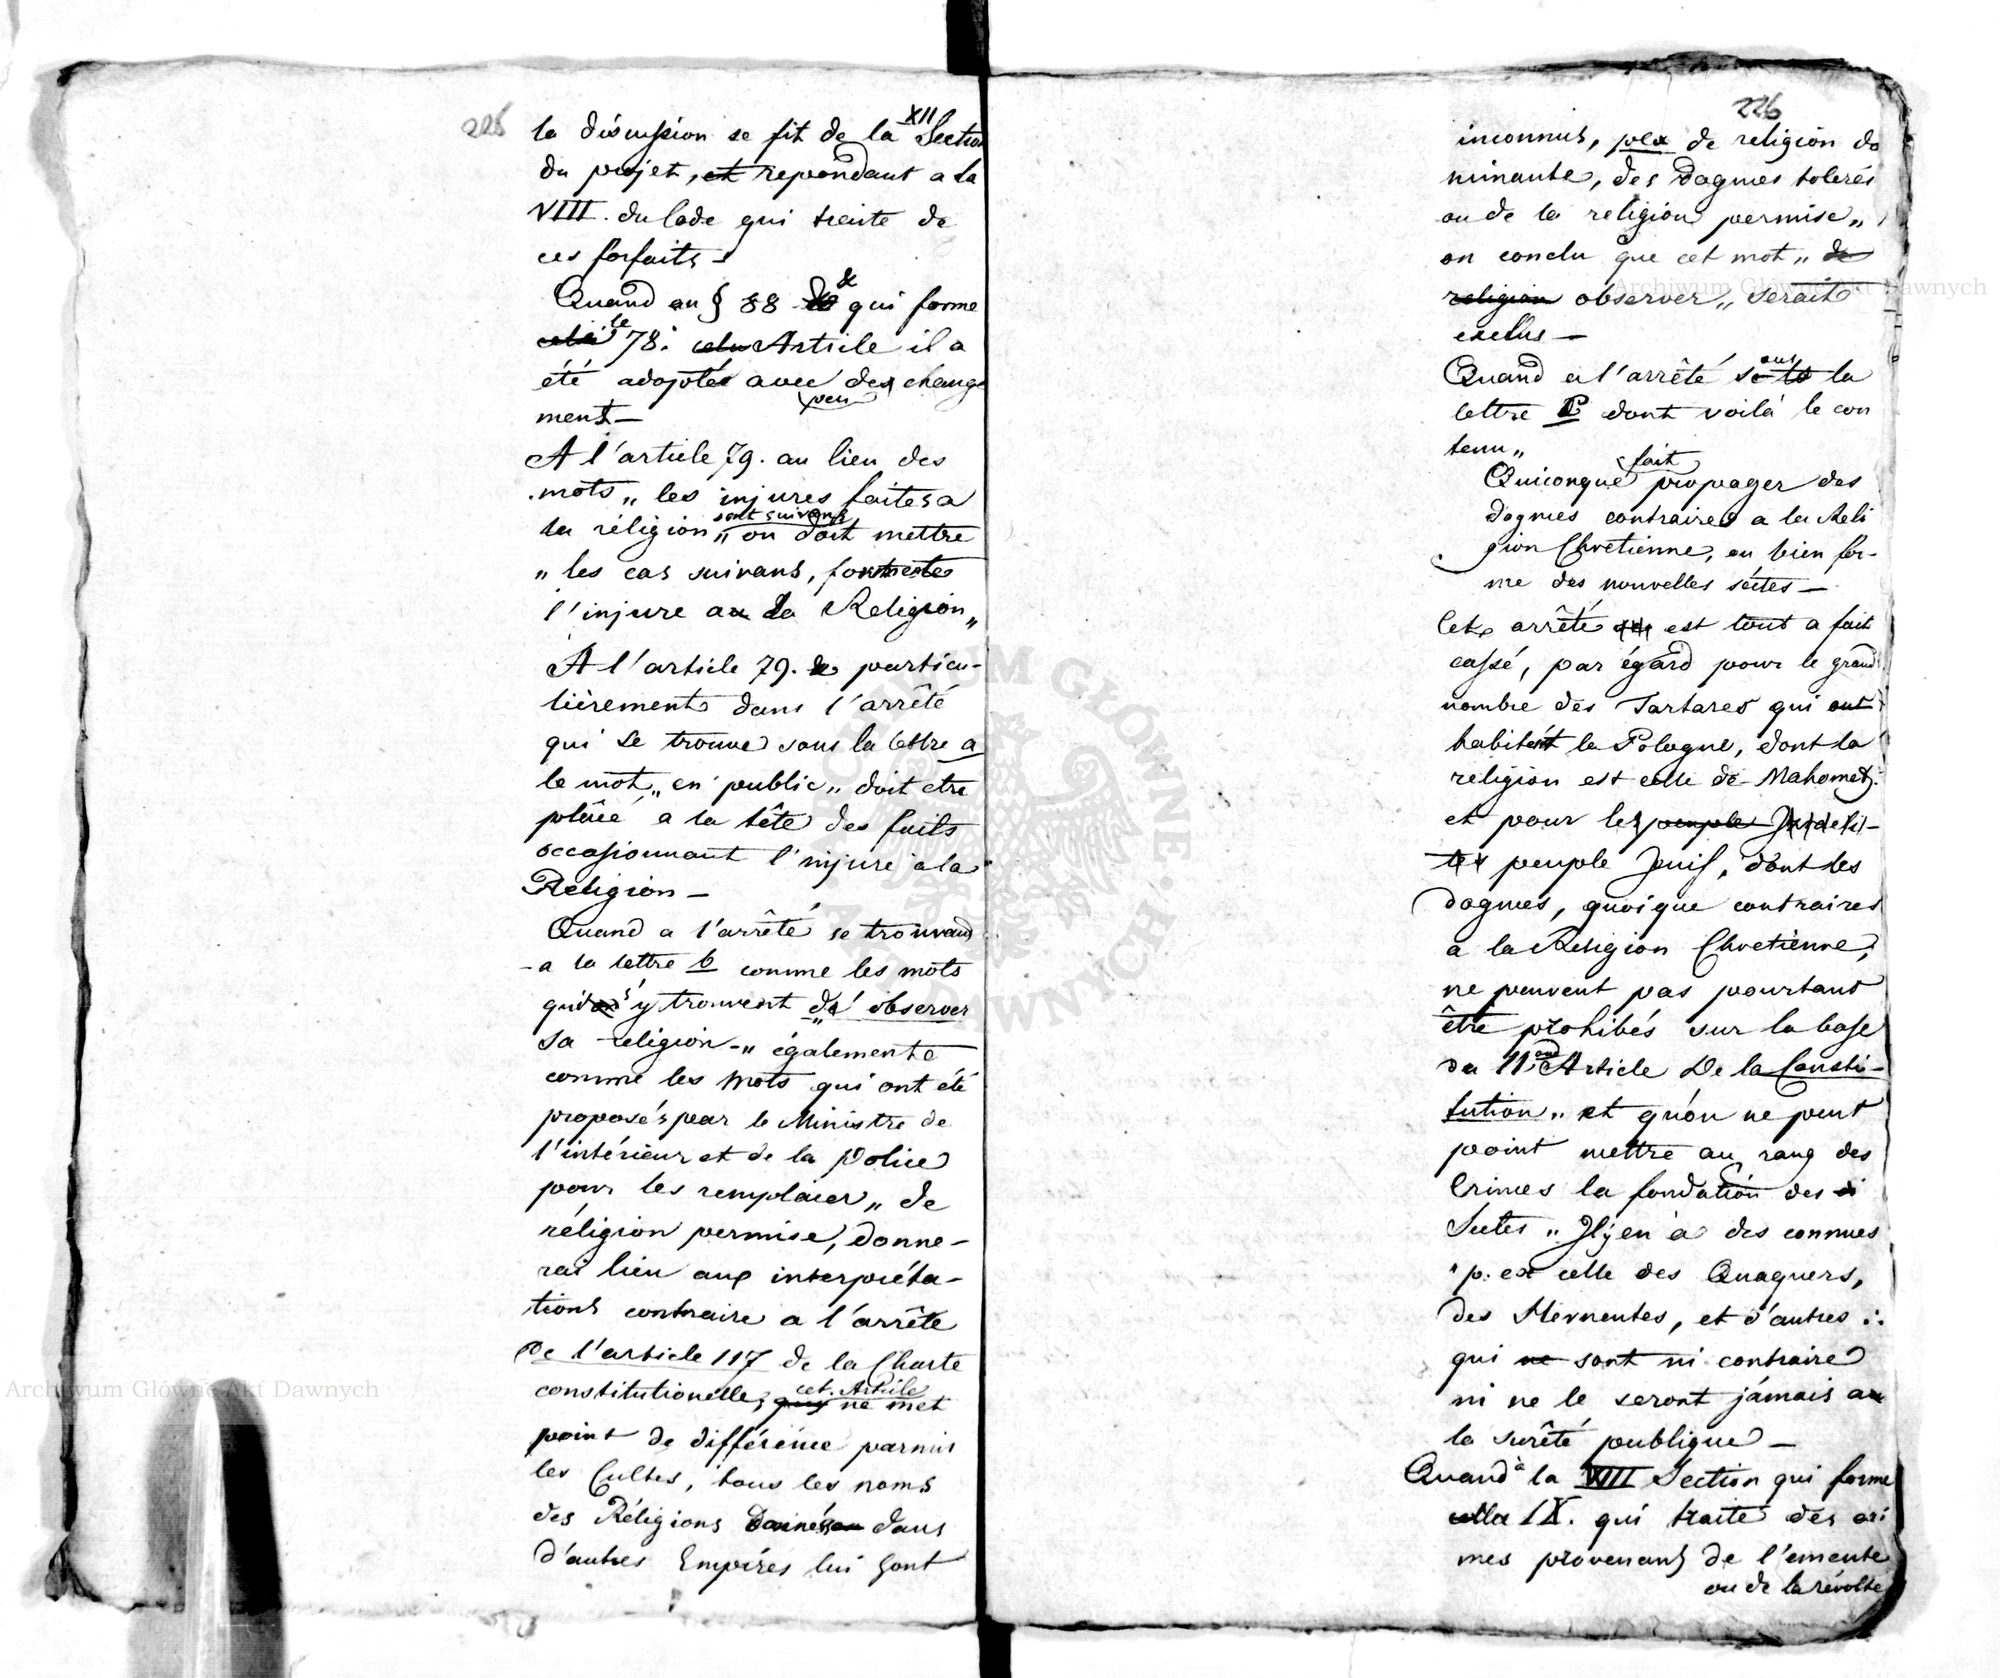 225
la discussion se fit de la XII Section
du projet, et repondant a la
VIII. du Code qui traite de
ces forfaits –
Quand au § 88 de qui forme
le 78. Article il a
été adoptée avec des change
peu
ment –
A l'article 79. au lieu des
mots „ les injures faites a
la réligion „ sont suivans on doit mettre
„ les cas suivans,
l'injure a la Religion „
A l'article 79. particu-
lièrement dans l'arrêté
qui se trouve sous la lettre a
le mot „ en public „ doit etre
plâcé a la tête des faits
occasionnant l'injure a la
Religion –
Quand a l'arrêté se trouvand
a la lettre b comme les mots
qui s'y trouvent de observer
sa religion „ également
comme les mots qui ont été
proposés par le Ministre de
l'intérieur et de la Police
pour les remplacer „ de
réligion permise, donne-
rai lieu aux interpréta-
tions contraire a l'arrête
De l'article 117 de la Charte
constitutionelle, cet Article ne met
point de différence parmis
les Cultes, tous les noms
des Réligions donnés dans
d'autres Empires lui sont
226
inconnus, p.ex de religion do
minante, des Dogmes tolerés
ou de la religion permise „
on conclu que cet mot „ de
religion observer „ serait
exclus –
Quand a l'arrêté sous la
lettre C dont voilà le con
tenu „
Quiconque fait propager des
dogmes contraires a la Reli
gion Chretienne, ou bien for-
me des nouvelles séctes –
Cet arrêté est tout a fait
cassé, par égard pour le grand
nombre des Tartares qui ont
habitent la Pologne, dont la
religion est celle de Mahomet,
et pour les peuple
peuple Juif, dont les
dogmes, quoique contraires
a la Religion Chretienne,
ne peuvent pas pourtant
être prohibés sur la base
du 11 Article De la Consti-
tution „ et qu'on ne peut
point mettre au rang des
Crimes la fondation des
Sectes „ Il y en a des connues
p. ex celle des Quaquers,
des Mennentes, et d'autres :
qui ne sont ni contraire
ni ne le seront jámais au
la surêté publique –
Quand à la VIII Section qui forme
la IX. qui traite des cri
mes provenans de l'emeute
ou de la révolte
Archiwum Główne Akt Dawnych
Archiwum Główne Akt Dawnych
ARCHIWUM GŁÓWNE AKT DAWNYCH